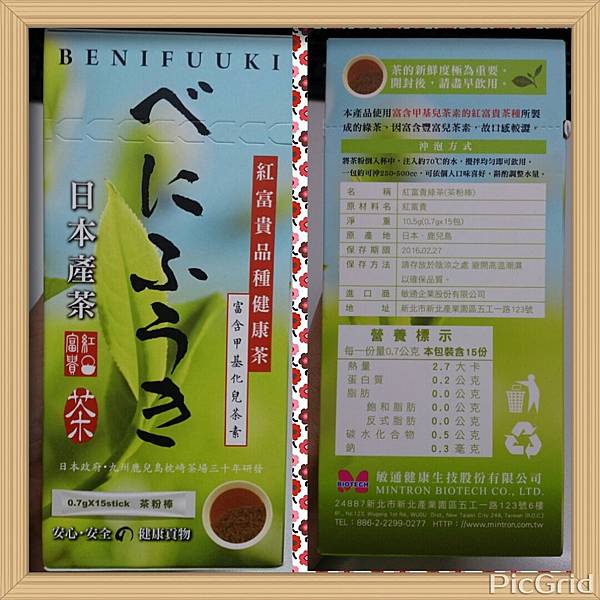 BENIFUUKI
べにふうき
紅富貴品種健康茶
富含甲基化兒茶素
日本產茶
紅富貴
茶
日本政府・九州鹿兒島枕崎茶場三十年研發
0.7gX15stick 茶粉棒
安心・安全の健康貢物
茶的新鮮度極為重要，
開封後，請盡早飲用。
本產品使用富含甲基兒茶素的紅富貴茶種所製
成的綠茶、因富含豐富兒茶素，故口感較澀。
沖泡方式
將茶粉倒入杯中，注入約70℃的水，攪拌均勻即可飲用。
一包約可沖250-500cc，可依個人口味喜好，斟酌調整水量。
名稱 紅富貴綠茶(茶粉棒)
原材料名 紅富貴
淨重 10.5g(0.7gx15包)
原產地 日本．鹿兒島
保存期限 2016.02.27
保存方法 請存放於陰涼之處 避開高溫潮濕
以確保品質。
進口廠 敏通企業股份有限公司
地址 新北市新北產業園區五工一路123號
營養標示
每一份量0.7公克 本包裝含15份
熱量 2.7大卡
蛋白質 0.2公克
脂肪 0.0公克
飽和脂肪 0.0公克
反式脂肪 0.0公克
碳水化合物 0.5公克
鈉 0.3毫克
BIOTECH
敏通健康生技股份有限公司
MINTRON BIOTECH CO., LTD.
24887新北市新北產業園區五工一路123號6樓
6F., No.123, Wugong 1st Rd., WUGU Dist., New Taipei City 248, Taiwan (R.O.C.)
TEL：886-2-2299-0277 HTTP：//www.mintron.com.tw
PicGrid